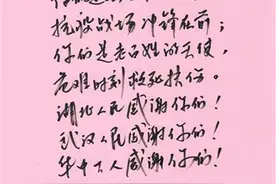 抗役战场冲锋在前；
你们是老百姓的天使，
危难时刻救死扶伤。
湖北人民感谢你们！
武汉人民感谢你们！
华人感谢你们！